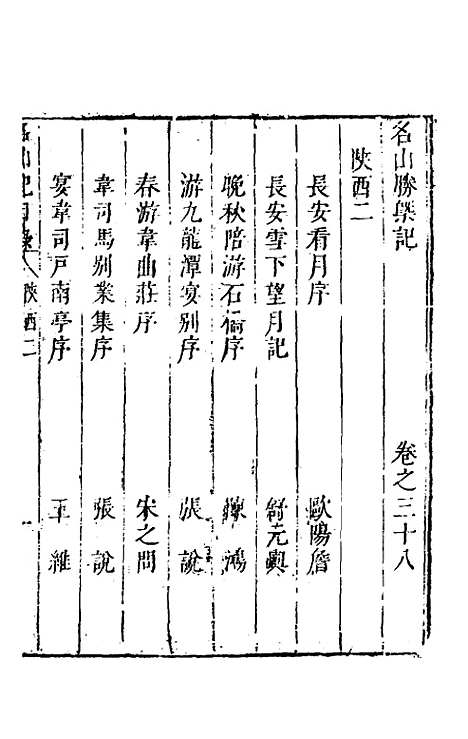 名山勝槩記 卷之三十八
陝西二
長安看月序 歐陽詹
長安雪下望月記 舒元輿
晚秋陪游石樓序 鴻
游九龍潭宴別序 張說
春游韋曲莊序 宋之問
韋司馬別業集序 張說
宴韋司戸南亭序 王維
名山記目錄 陝西二 一